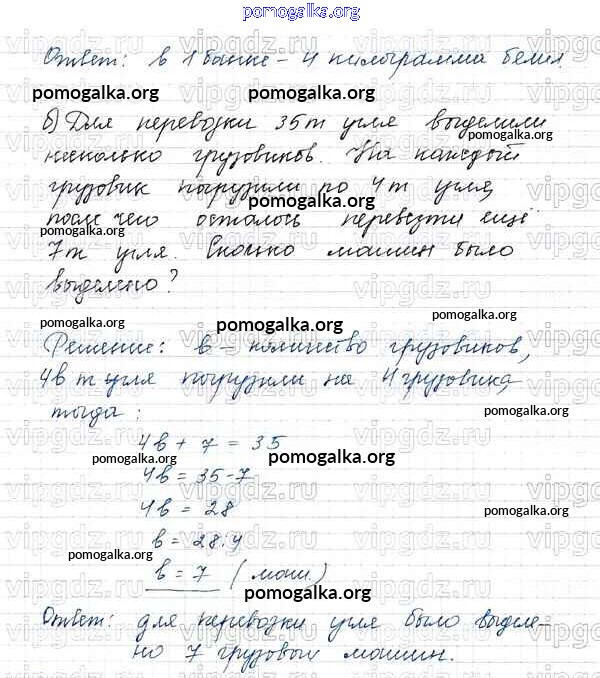 pomogalka.org
Ответ: в 1 банке - 4 килограмма белил.
pomogalka.org pomogalka.org
б) Для перевозки 35 т угля выделили
pomogalka.org
несколько грузовиков. На каждый
грузовик погрузили по 4 т угля,
pomogalka.org
после чего осталось перевезти ещё
7 т угля. Сколько машин было
выделено?
pomogalka.org pomogalka.org
pomogalka.org
Решение: в - количество грузовиков,
4в т угля погрузили на 4 грузовика,
тогда: pomogalka.org
4в + 7 = 35
pomogalka.org pomogalka.org
4в = 35-7
4в = 28
в = 28:4
pomogalka.org
в = 7 (маш.) pomogalka.org
Ответ: для перевозки угля было выделе-
но 7 грузовых машин.